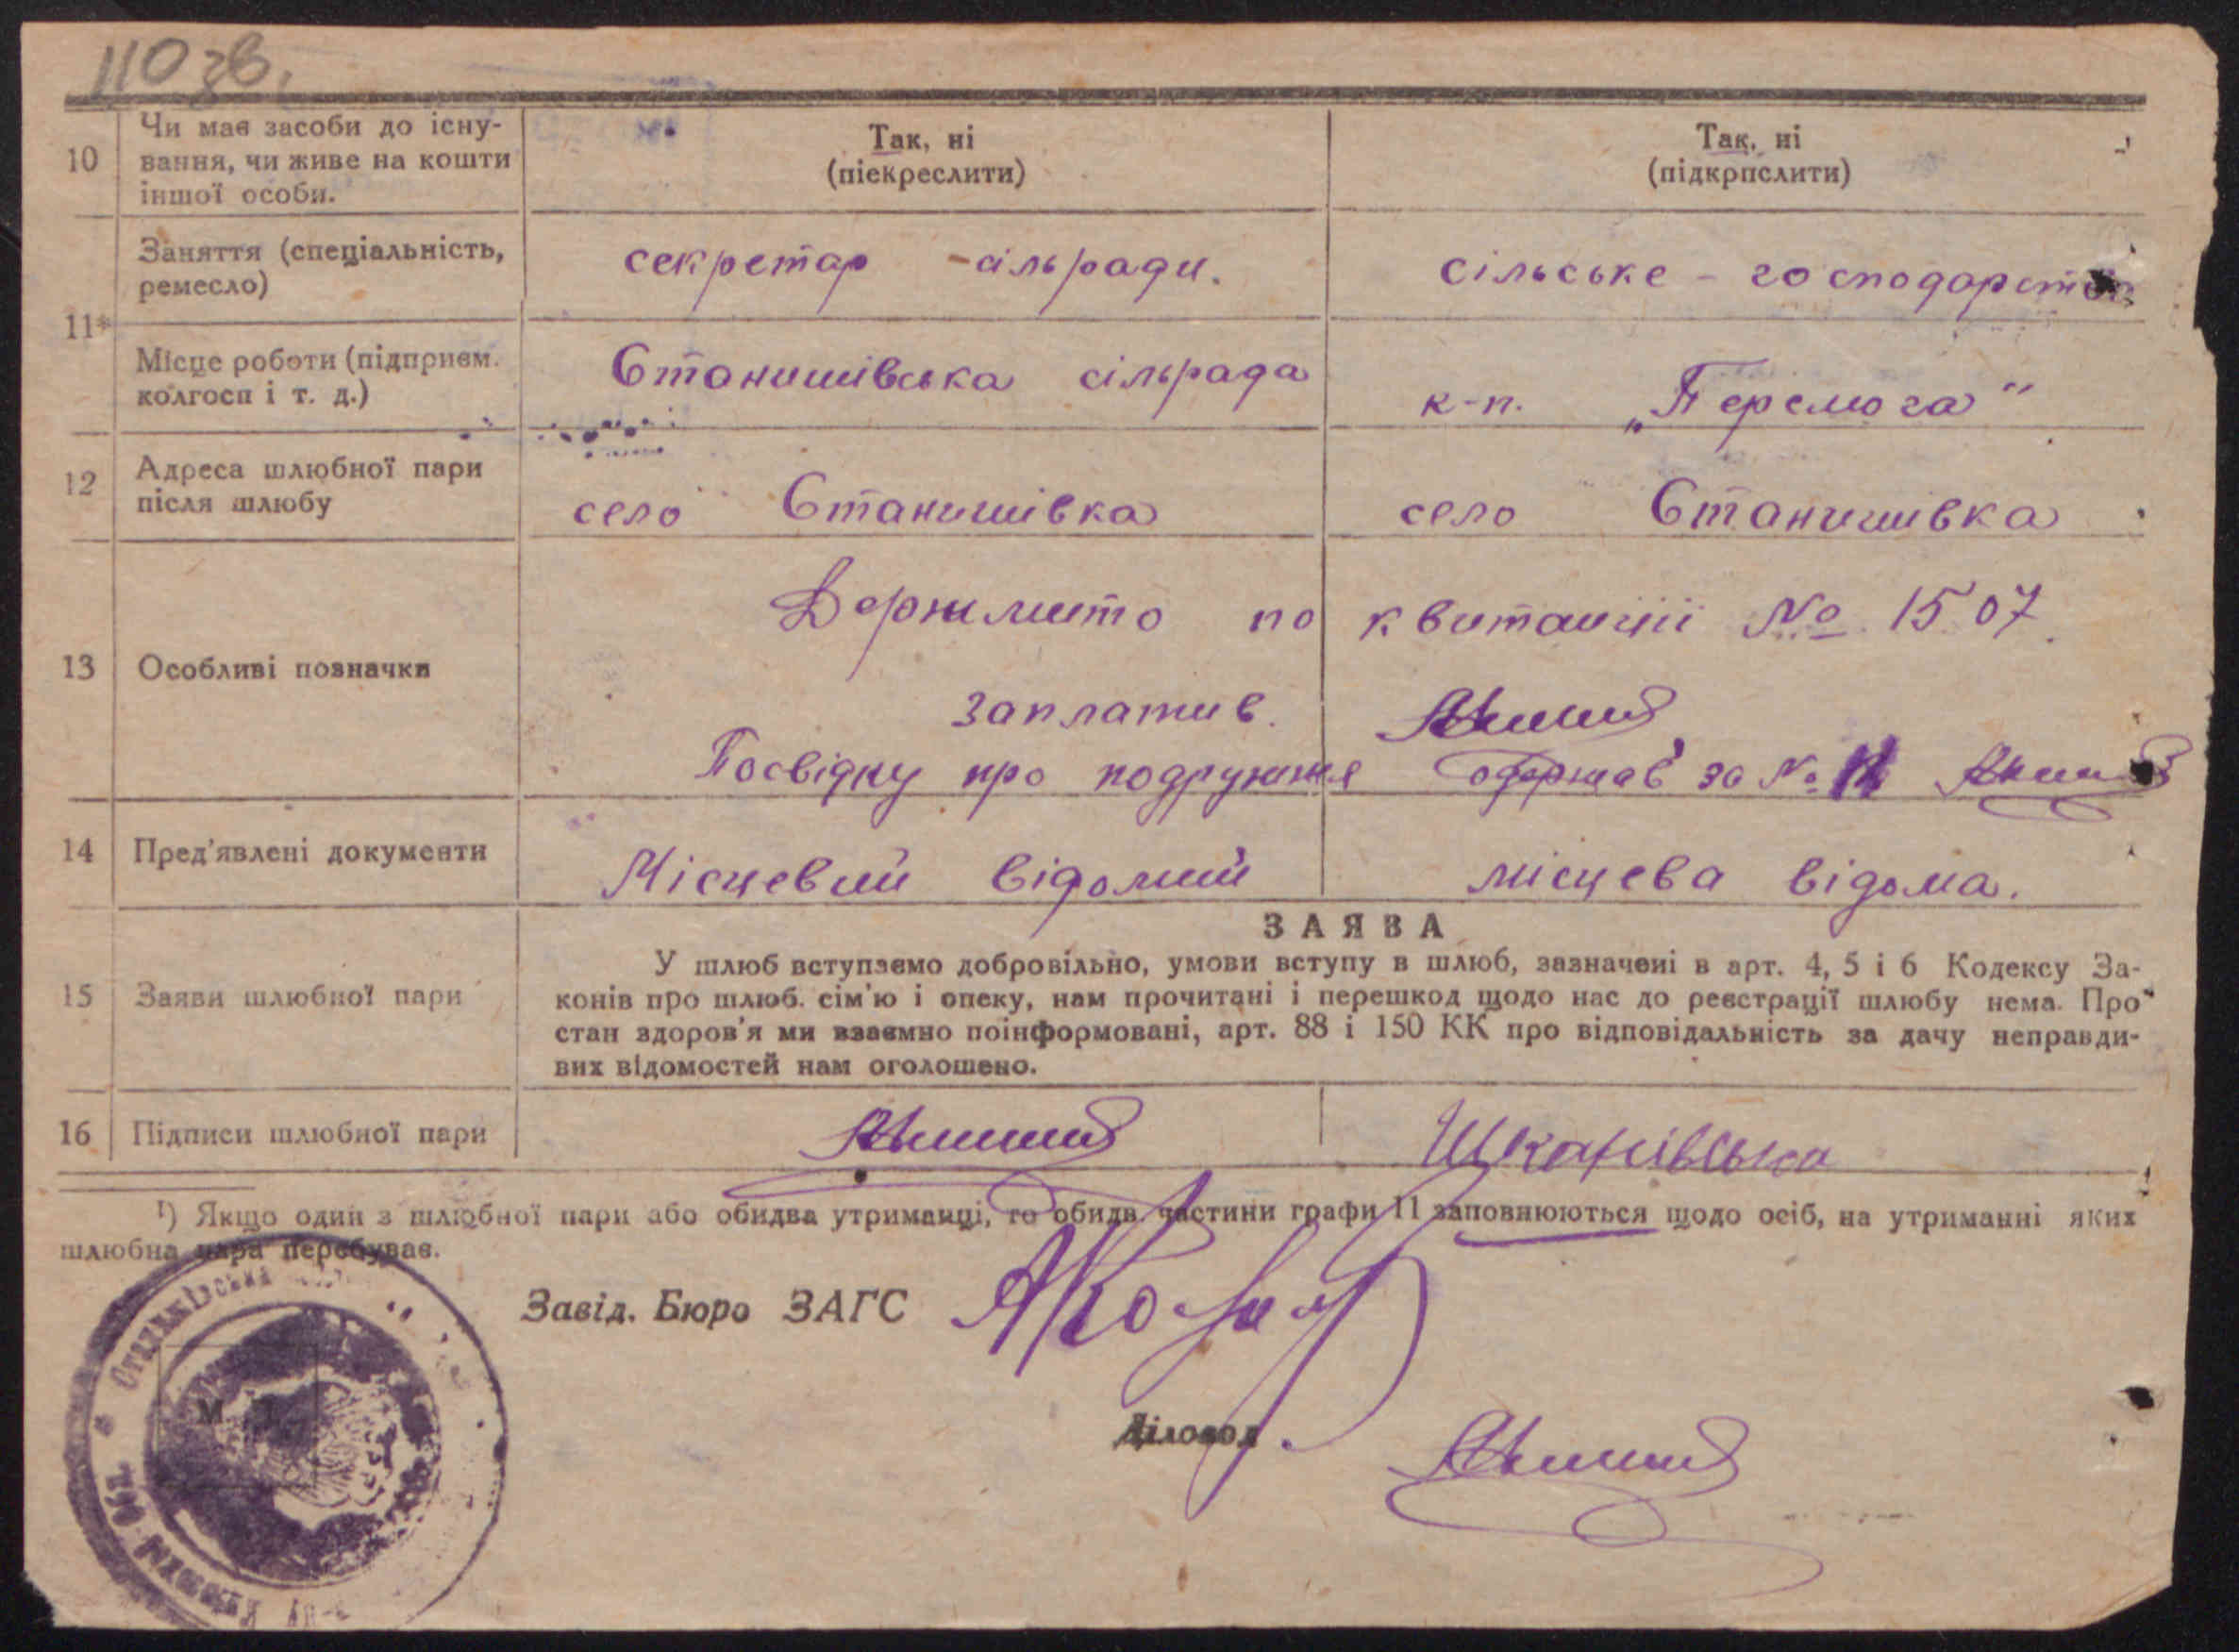 110 зв.
10 Чи має засоби до існу- Так, ні Так, ні
вання, чи живе на кошти (піекреслити) (підкрпслити)
іншої особи.
Заняття (спеціальність, секретар сільради. сільське - господарство
ремесло)
11*
Місце роботи (підприєм. Станишівська сільрада к-п. „Перемога"
колгосп і т. д.)
12 Адреса шлюбної пари село Станишівка село Станишівка
після шлюбу
Держмито по квитанції № 1507.
13 Особливі позначки
заплатив.
Посвідку про подружжя одержав за №
14 Пред'явлені документи Місцевий відомий місцева відома.
ЗАЯВА
У шлюб вступаємо добровільно, умови вступу в шлюб, зазначені в арт. 4, 5 і 6 Кодексу За-
15 Заяви шлюбної пари конів про шлюб. сім'ю і опеку, нам прочитані і перешкод щодо нас до реєстрації шлюбу нема. Про
стан здоров'я ми взаємно поінформовані, арт. 88 і 150 КК про відповідальність за дачу неправди-
вих відомостей нам оголошено.
16 Підписи шлюбної пари Шканівська
¹) Якщо один з шлюбної пари або обидва утриманці, то обидв. частини графи 11 заповнюються щодо осіб, на утриманні яких
шлюбна пара перебуває.
Завід. Бюро ЗАГС
Діловод
М.